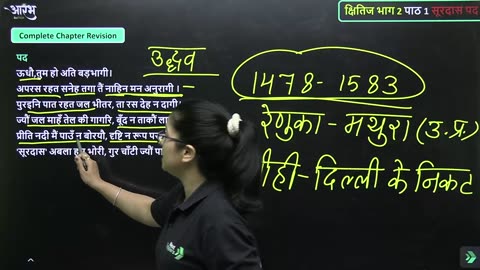 आरंभ
क्षितिज भाग 2 पाठ 1 सूरदास पद
Complete Chapter Revision
पद
ऊधौ,तुम हो अति बड़भागी।
अपरस रहत सनेह तगा तैं नाहिन मन अनुरागी।
पुरइनि पात रहत जल भीतर, ता रस देह न दागी
ज्यौं जल माहँ तेल की गागरि, बूँद न ताकौं
प्रीति नदी मैं पाउँ न बोरयौ, दृष्टि न रूप
'सूरदास' अबला भोरी, गुर चाँटी ज्यौं
उद्धव
1478-1583
रेणुका - मथुरा (उ.प्र.)
ही - दिल्ली के निकट